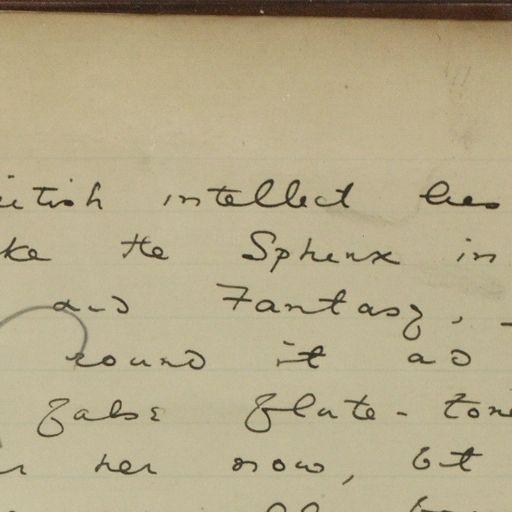 ritish intellect lies
ke the Sphinx in
and Fantasy,
round it and
false flute-tone
r her now, but